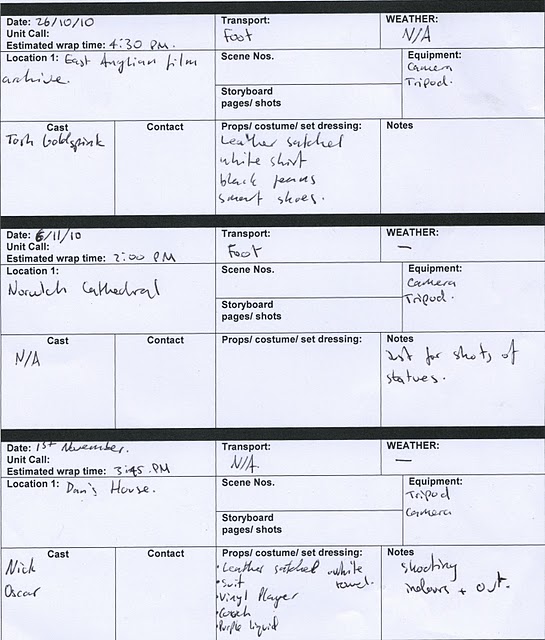 Date: 26/10/10 Transport: WEATHER:
Unit Call: Foot N/A
Estimated wrap time: 4:30 PM.
Location 1: East Anglian film Scene Nos. Equipment:
archive. Camera
Tripod.
Storyboard
pages/ shots
Cast Contact Props/ costume/ set dressing: Notes
Tosh Goldspink Leather satchel
white shirt
black jeans
smart shoes.
Date: 6/11/10 Transport: WEATHER:
Unit Call: Foot —
Estimated wrap time: 2:00 PM
Location 1: Scene Nos. Equipment:
Norwich Cathedral Camera
Tripod.
Storyboard
pages/ shots
Cast Contact Props/ costume/ set dressing: Notes
N/A Just for shots of
statues.
Date: 1st November. Transport: WEATHER:
Unit Call: N/A —
Estimated wrap time: 3:45 PM
Location 1: Dan's House. Scene Nos. Equipment:
Tripod
Camera
Storyboard
pages/ shots
Cast Contact Props/ costume/ set dressing: Notes
Nick • Leather satchel • white towel. shooting
Oscar • Suit indoors + out.
• Vinyl Player
• Couch
• Purple liquid